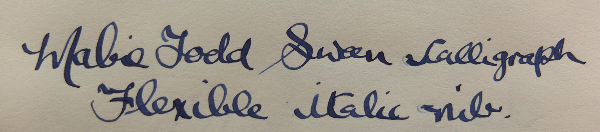 Mabie Todd Swan Calligraph
Flexible italic nib.